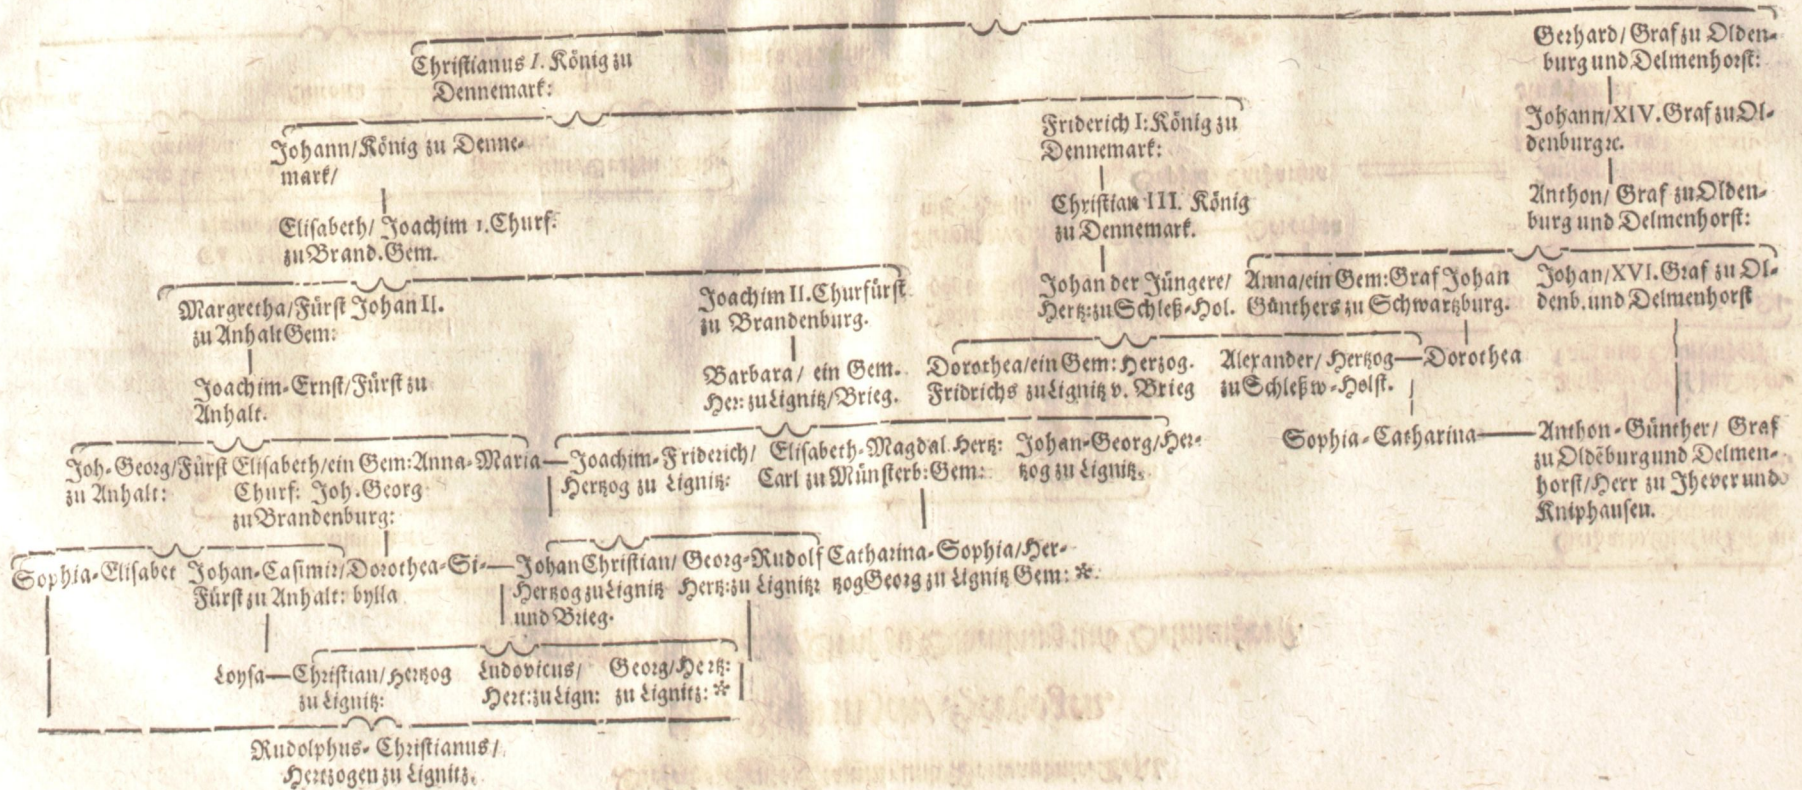 Christianus I. König zu
Dennemark:
Gerhard/ Graf zu Olden-
burg und Delmenhorst:
Johann/ König zu Denne-
mark/
Friderich I: König zu
Dennemark:
Johann/ XIV. Graf zu Ol-
denburg ꝛc.
Elisabeth/ Joachim 1. Churf:
zu Brand. Gem.
Christian III. König
zu Dennemark.
Anthon/ Graf zu Olden-
burg und Delmenhorst:
Margretha/ Fürst Johan II.
zu Anhalt Gem:
Joachim II. Churfürst
zu Brandenburg.
Johan der Jüngere/
Hertz: zu Schleß-Hol.
Anna/ ein Gem: Graf Johan
Günthers zu Schwartzburg.
Johan/ XVI. Graf zu Ol-
denb. und Delmenhorst
Joachim-Ernst/ Fürst zu
Anhalt.
Barbara/ ein Gem.
Her: zu Lignitz/ Brieg.
Dorothea/ ein Gem: Herzog.
Fridrichs zu Lignitz v. Brieg
Alexander/ Hertzog
zu Schleßw-Holst.
Dorothea
Joh-Georg/ Fürst
zu Anhalt:
Elisabeth/ ein Gem:
Churf: Joh. Georg
zu Brandenburg:
Anna-Maria
Joachim-Friderich/
Hertzog zu Lignitz:
Elisabeth-Magdal. Hertz:
Carl zu Münsterb: Gem:
Johan-Georg/ Her-
tzog zu Lignitz.
Sophia-Catharina
Anthon-Günther/ Graf
zu Oldēburg und Delmen-
horst/ Herr zu Jhever und
Kniphausen.
Sophia-Elisabet
Johan-Casimir/
Fürst zu Anhalt:
Dorothea-Si-
bylla
Johan Christian/
Hertzog zu Lignitz
und Brieg.
Georg-Rudolf
Hertz: zu Lignitz
Catharina-Sophia/ Her-
tzog Georg zu Lignitz Gem: *
Loysa
Christian/ Hertzog
zu Lignitz:
Ludovicus/
Hert: zu Lign:
Georg/ Hertz:
zu Lignitz: *
Rudolphus-Christianus/
Hertzogen zu Lignitz.